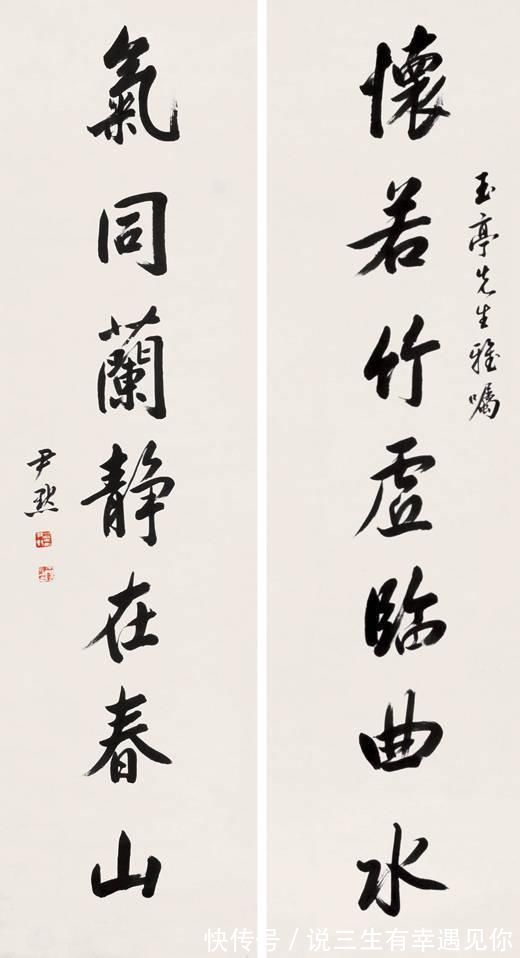 玉亭先生雅嘱
懷若竹虚臨曲水
氣同蘭静在春山
尹默
快传号／说三生有幸遇见你